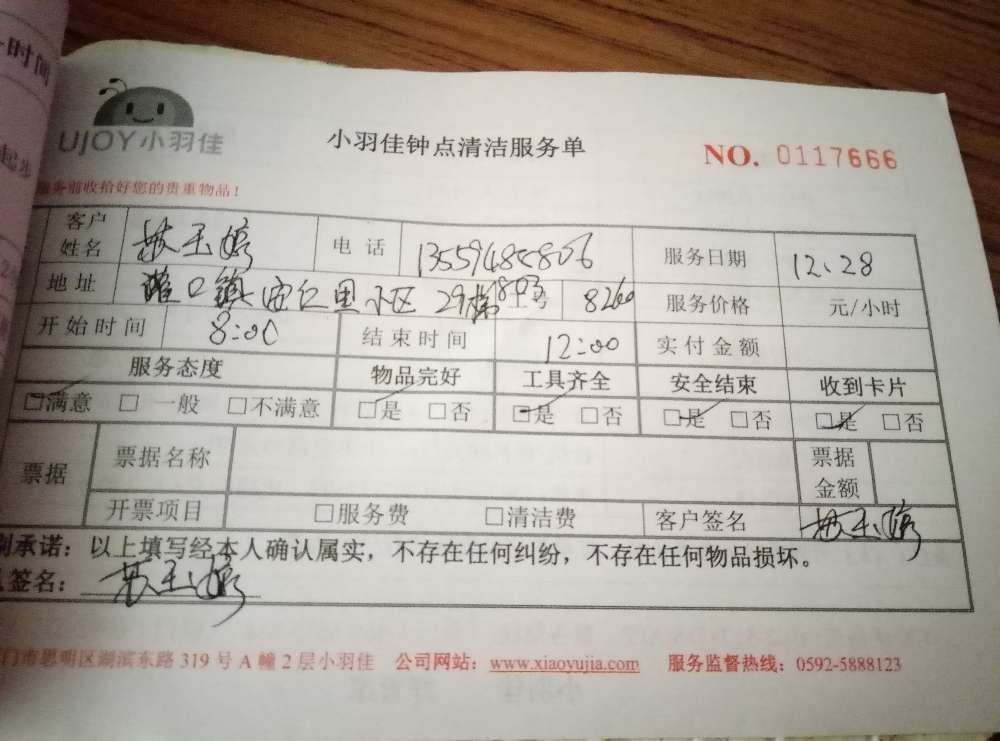 时间
起步
UJOY小羽佳
小羽佳钟点清洁服务单
NO. 0117666
服务前收拾好您的贵重物品！
客户姓名 玉婷 电话 服务日期 12、28
地址 口镇 里小区 29栋 1803号 8260 服务价格 元/小时
开始时间 8:00 结束时间 12:00 实付金额
服务态度 物品完好 工具齐全 安全结束 收到卡片
□满意 □一般 □不满意 □是 □否 □是 □否 □是 □否 □是 □否
票据 票据名称 票据金额
开票项目 □服务费 □清洁费 客户签名 玉婷
承诺：以上填写经本人确认属实，不存在任何纠纷，不存在任何物品损坏。
签名： 玉婷
门市思明区湖滨东路 319 号 A 幢 2 层小羽佳 公司网站：www.xiaoyujia.com 服务监督热线：0592-5888123